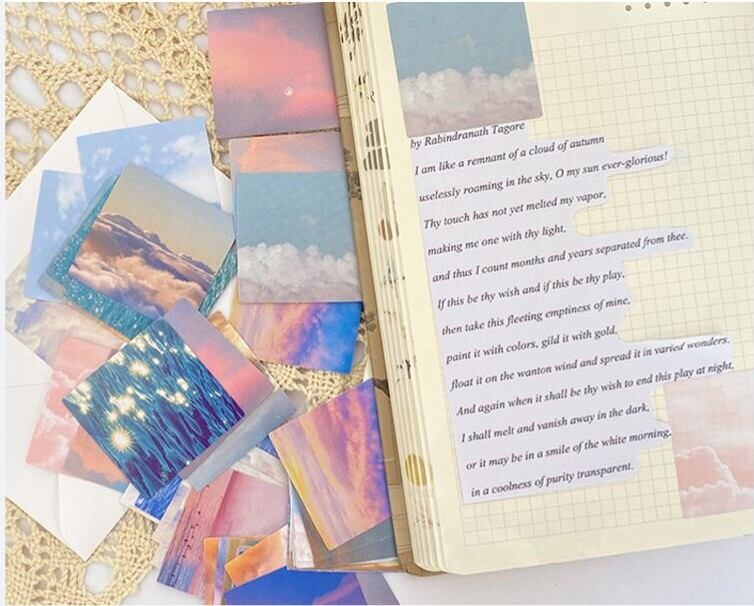 by Rabindranath Tagore
I am like a remnant of a cloud of autumn
uselessly roaming in the sky, O my sun ever-glorious!
Thy touch has not yet melted my vapor,
making me one with thy light,
and thus I count months and years separated from thee.
If this be thy wish and if this be thy play,
then take this fleeting emptiness of mine,
paint it with colors, gild it with gold,
float it on the wanton wind and spread it in varied wonders.
And again when it shall be thy wish to end this play at night,
I shall melt and vanish away in the dark,
or it may be in a smile of the white morning,
in a coolness of purity transparent.